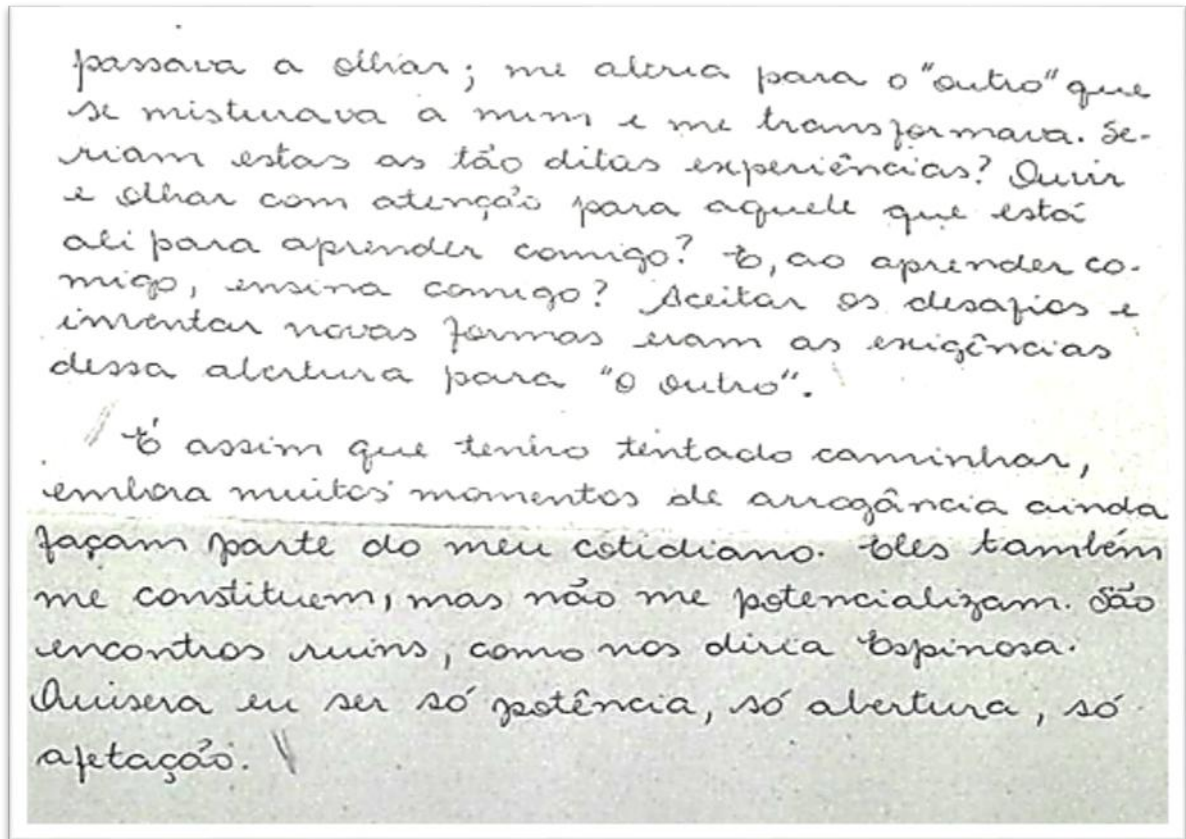 passava a olhar; me abria para o "outro" que
se misturava a mim e me transformava. Se-
riam estas as tão ditas experiências? Ouvir
e olhar com atenção para aquele que está
ali para aprender comigo? E, ao aprender co-
migo, ensina comigo? Aceitar os desafios e
inventar novas formas eram as exigências
dessa abertura para "o outro".
É assim que tenho tentado caminhar,
embora muitos momentos de arrogância ainda
façam parte do meu cotidiano. Eles também
me constituem, mas não me potencializam. São
encontros ruins, como nos diria Espinosa.
Quisera eu ser só potência, só abertura, só
afetação.